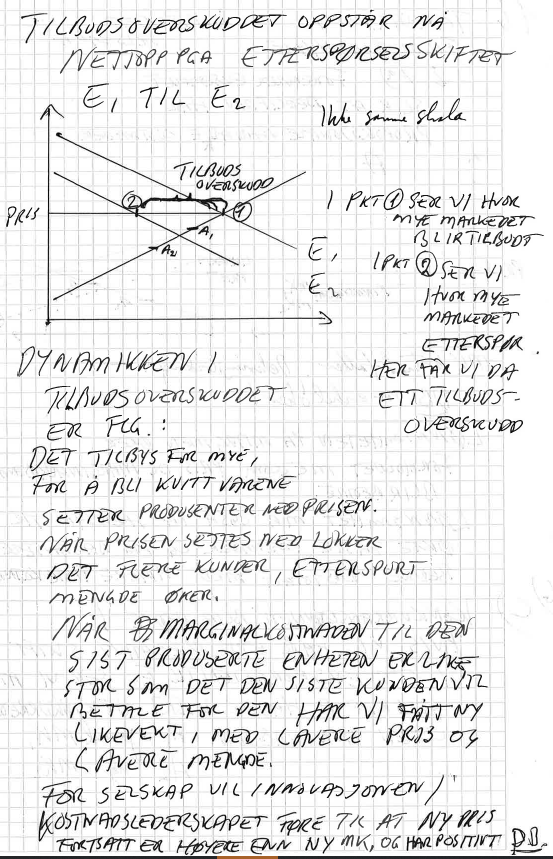 TILBUDSOVERSKUDDET OPPSTÅR NÅ
NETTOPP PGA ETTERSPØRSELSSKIFTET
E1 TIL E2
Ikke samme skala
TILBUDS
OVERSKUDD
②
①
PRIS
A1
A2
E1
E2
I PKT ① SER VI HVOR
MYE MARKEDET
BLIR TILBUDT
I PKT ② SER VI
HVOR MYE
MARKEDET
ETTERSPØR.
HER FÅR VI DA
ETT TILBUDS-
OVERSKUDD
DYNAMIKKEN I
TILBUDSOVERSKUDDET
ER FLG.:
DET TILBYS FOR MYE,
FOR Å BLI KVITT VARENE
SETTER PRODUSENTER NED PRISEN.
NÅR PRISEN SETTES NED LOKKER
DET FLERE KUNDER, ETTERSPURT
MENGDE ØKER.
NÅR MARGINALKOSTNADEN TIL DEN
SIST PRODUSERTE ENHETEN ER LIKE
STOR SOM DET DEN SISTE KUNDEN VIL
BETALE FOR DEN HAR VI FÅTT NY
LIKEVEKT, MED LAVERE PRIS OG
LAVERE MENGDE.
FOR SELSKAP VIL INNOVASJONEN/
KOSTNADSLEDERSKAPET FØRE TIL AT NY PRIS
FORTSATT ER HØYERE ENN NY MK, OG HAR POSITIVT DB.